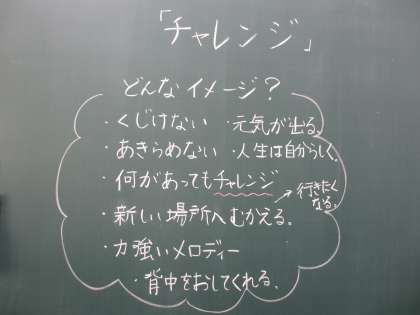 「チャレンジ」
どんなイメージ?
・くじけない ・元気が出る。
・あきらめない ・人生は自分らしく。
・何があってもチャレンジ
・新しい場所へむかえる。→行きたくなる。
・力強いメロディー
・背中をおしてくれる。